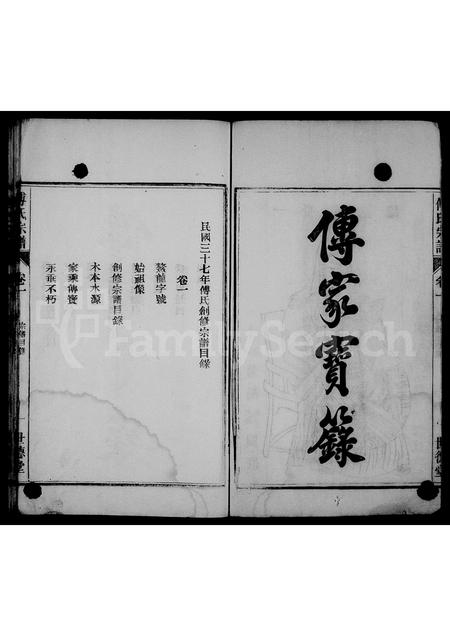 傅家寶籙
傅氏宗譜
卷一
世德堂
民國三十七年傅氏創修宗譜目錄
卷一
字號
始祖像
創修宗譜目錄
木本水源
家乘傳寶
永垂不朽
傅氏宗譜
卷一
宗譜目錄
一
世德堂
FamilySearch